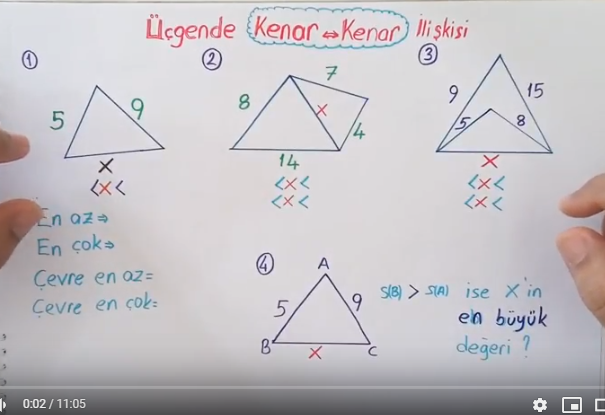 Üçgende Kenar ↔ Kenar İlişkisi
①
5
9
x
<x<
En az ⇒
En çok ⇒
Çevre en az =
Çevre en çok =
②
8
7
x
4
14
<x<
<x<
③
9
15
5
8
x
<x<
<x<
④
A
5
9
B
x
C
S(B) > S(A) ise x'in
en büyük
değeri ?
0:02 / 11:05